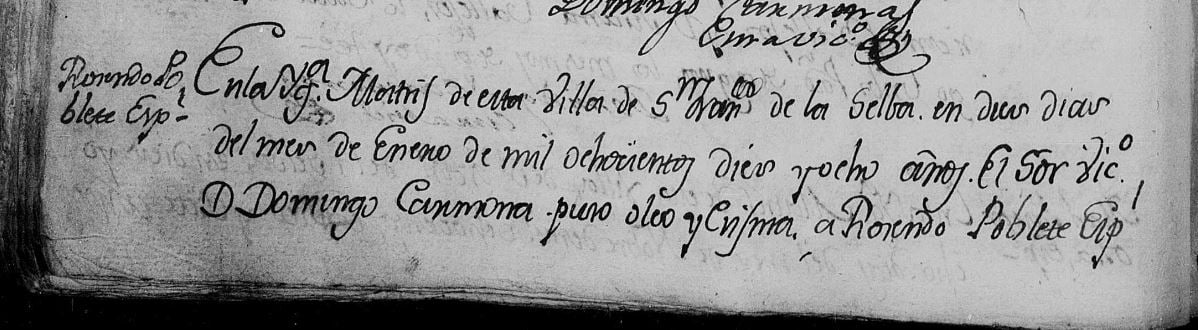 Domingo Carmona
Cura vic.º
Rosendo Po
blete Esp.l
En la Ygª. Matris de esta Villa de S.n Franco de la Selba. en dies dias
del mes de Enero de mil ochosientos dies y ocho años. El Sōr Vic.º
D Domingo Carmona. puso oleo y Crisma, a Rosendo Poblete Esp.l